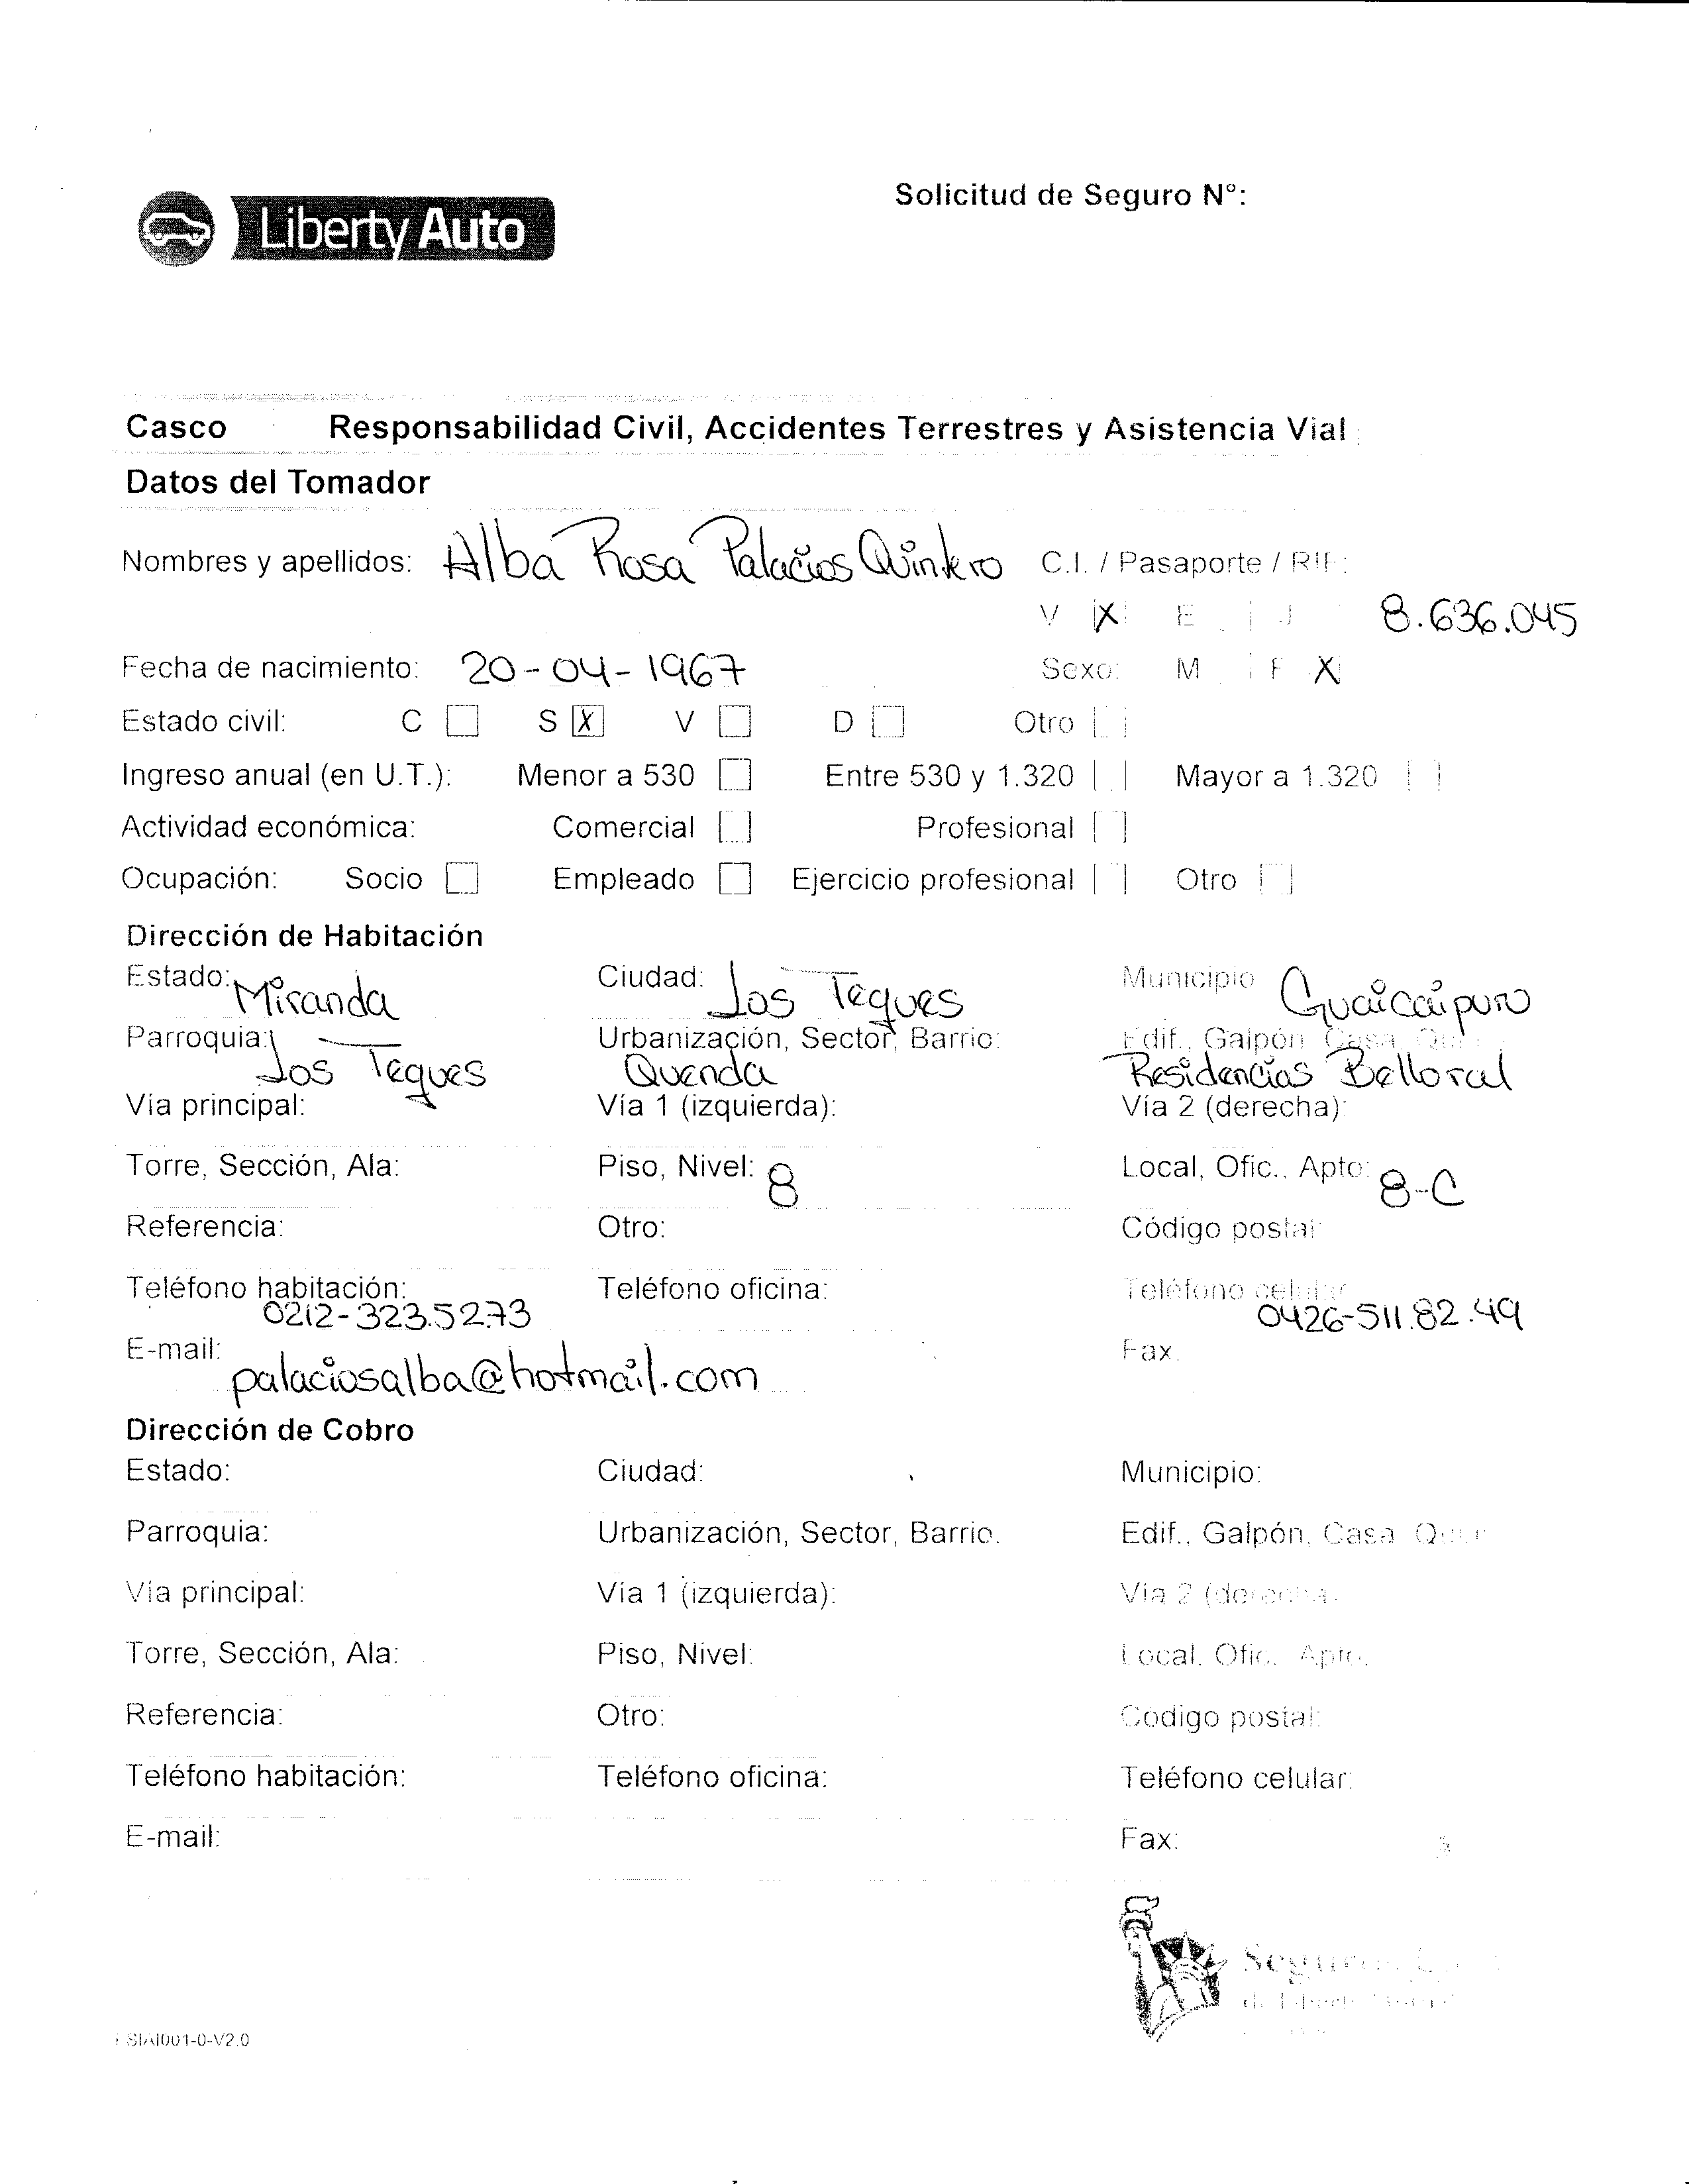 Liberty Auto
Solicitud de Seguro N°:
Casco Responsabilidad Civil, Accidentes Terrestres y Asistencia Vial
Datos del Tomador
Nombres y apellidos: Alba Rosa Palacios Quintero C.I. / Pasaporte / RIF:
V X E J 8.636.045
Fecha de nacimiento: 20-04-1967 Sexo: M F X
Estado civil: C S X V D Otro
Ingreso anual (en U.T.): Menor a 530 Entre 530 y 1.320 Mayor a 1.320
Actividad económica: Comercial Profesional
Ocupación: Socio Empleado Ejercicio profesional Otro
Dirección de Habitación
Estado: Miranda Ciudad: Los Teques Municipio Guaicaipuro
Parroquia: Los Teques Urbanización, Sector, Barrio: Quenda Edif., Galpón Casa, Residencias Belloral
Vía principal: Vía 1 (izquierda): Vía 2 (derecha):
Torre, Sección, Ala: Piso, Nivel: 8 Local, Ofic., Apto: 8-C
Referencia: Otro: Código postal:
Teléfono habitación: 0212-323.52.73 Teléfono oficina: Teléfono celular 0426-511.82.49
E-mail: palaciosalba@hotmail.com Fax.
Dirección de Cobro
Estado: Ciudad: Municipio:
Parroquia: Urbanización, Sector, Barrio. Edif., Galpón, Casa
Vía principal: Vía 1 (izquierda): Vía 2 (derecha
Torre, Sección, Ala: Piso, Nivel: Local, Ofic. Apto.
Referencia: Otro: Código postal:
Teléfono habitación: Teléfono oficina: Teléfono celular:
E-mail: Fax:
Seguros
SIAI001-0-V2.0